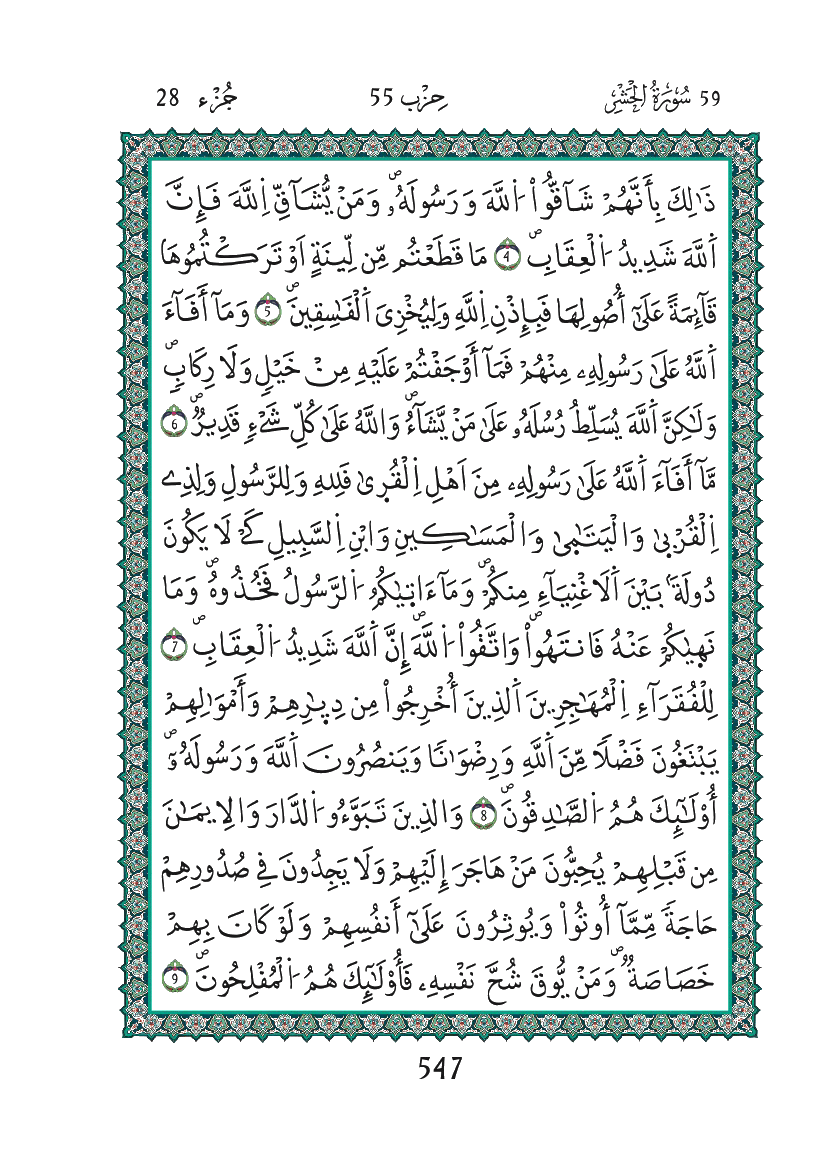 59 سُورَةُ الْحَشْرِ حِزْب 55 جُزْء 28
ذَٰلِكَ بِأَنَّهُمْ شَآقُّواْ اُ۬للَّهَ وَرَسُولَهُۥۖ وَمَنْ يُّشَآقِّ اِ۬للَّهَ فَإِنَّ
اَ۬للَّهَ شَدِيدُ اُ۬لْعِقَابِۖ 4 مَا قَطَعْتُم مِّن لِّينَةٍ اَوْ تَرَكْتُمُوهَا
قَآئِمَةً عَلَىٰٓ أُصُولِهَا فَبِإِذْنِ اِ۬للَّهِ وَلِيُخْزِىَ اَ۬لْفَٰسِقِينَۖ 5 وَمَآ أَفَآءَ
اَ۬للَّهُ عَلَىٰ رَسُولِهِۦ مِنْهُمْ فَمَآ أَوْجَفْتُمْ عَلَيْهِ مِنْ خَيْلٖ وَلَا رِكَابٖۖ
وَلَٰكِنَّ اَ۬للَّهَ يُسَلِّطُ رُسُلَهُۥ عَلَىٰ مَنْ يَّشَآءُۖ وَاللَّهُ عَلَىٰ كُلِّ شَےْءٖ قَدِيرٌۖ 6
مَّآ أَفَآءَ اَ۬للَّهُ عَلَىٰ رَسُولِهِۦ مِنَ اَهْلِ اِ۬لْقُرٜىٰ فَلِلهِ وَلِلرَّسُولِ وَلِذِے
اِ۬لْقُرْبٜىٰ وَالْيَتَٰمٜىٰ وَالْمَسَٰكِينِ وَابْنِ اِ۬لسَّبِيلِ كَےْ لَا يَكُونَ
دُولَةَۢ بَيْنَ اَ۬لَاغْنِيَآءِ مِنكُمْۖ وَمَآ ءَاتٜيٰكُمُ اُ۬لرَّسُولُ فَخُذُوهُۖ وَمَا
نَهٜيٰكُمْ عَنْهُ فَانتَهُواْۖ وَاتَّقُواْ اُ۬للَّهَۖ إِنَّ اَ۬للَّهَ شَدِيدُ اُ۬لْعِقَابِۖ 7
لِلْفُقَرَآءِ اِ۬لْمُهَٰجِرِينَ اَ۬لذِينَ أُخْرِجُواْ مِن دِيٰٜرِهِمْ وَأَمْوَٰلِهِمْ
يَبْتَغُونَ فَضْلًا مِّنَ اَ۬للَّهِ وَرِضْوَٰنًا وَيَنصُرُونَ اَ۬للَّهَ وَرَسُولَهُۥٓۖ
أُوْلَٰٓئِكَ هُمُ اُ۬لصَّٰدِقُونَۖ 8 وَالذِينَ تَبَوَّءُو اُ۬لدَّارَ وَالِايمَٰنَ
مِن قَبْلِهِمْ يُحِبُّونَ مَنْ هَاجَرَ إِلَيْهِمْ وَلَا يَجِدُونَ فِے صُدُورِهِمْ
حَاجَةً مِّمَّآ أُوتُواْ وَيُوثِرُونَ عَلَىٰٓ أَنفُسِهِمْ وَلَوْ كَانَ بِهِمْ
خَصَاصَةٌۖ وَمَنْ يُّوقَ شُحَّ نَفْسِهِۦ فَأُوْلَٰٓئِكَ هُمُ اُ۬لْمُفْلِحُونَۖ 9
547